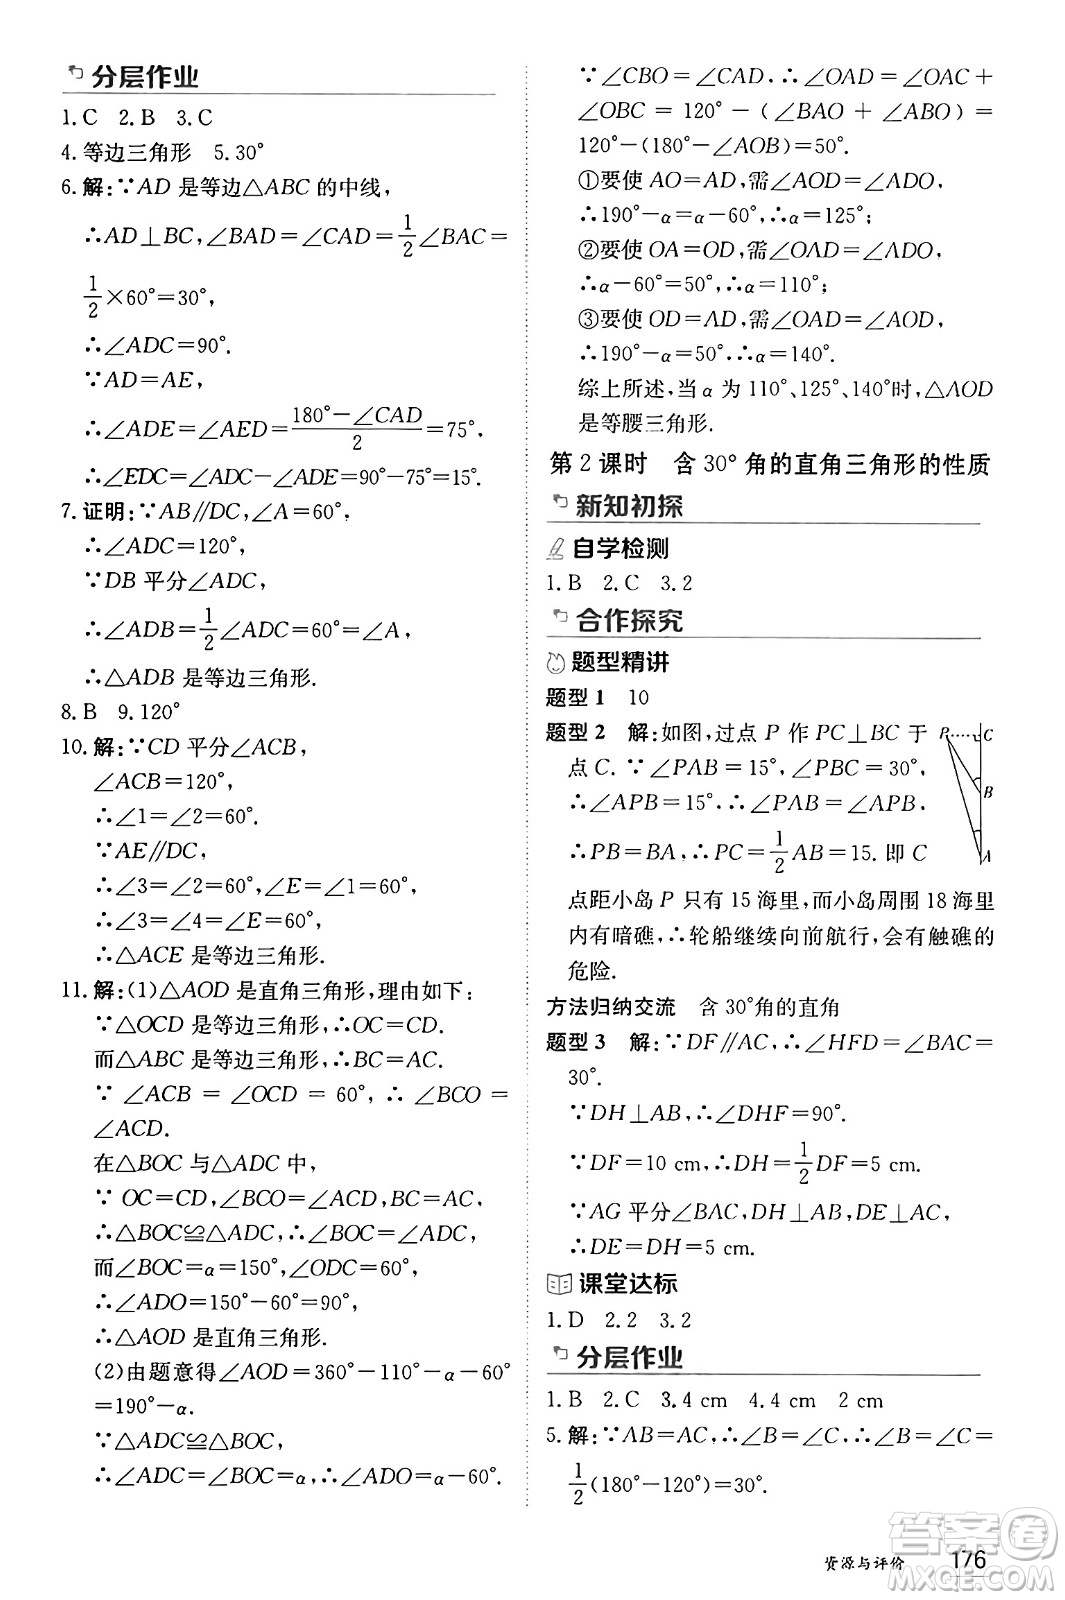 分层作业
1.C 2.B 3.C
4.等边三角形 5.30°
6.解:∵AD是等边△ABC的中线,
∴AD⊥BC,∠BAD=∠CAD=1/2∠BAC=
1/2×60°=30°,
∴∠ADC=90°.
∵AD=AE,
∴∠ADE=∠AED=(180°-∠CAD)/2=75°,
∴∠EDC=∠ADC-∠ADE=90°-75°=15°.
7.证明:∵AB∥DC,∠A=60°,
∴∠ADC=120°,
∵DB平分∠ADC,
∴∠ADB=1/2∠ADC=60°=∠A,
∴△ADB是等边三角形.
8.B 9.120°
10.解:∵CD平分∠ACB,
∠ACB=120°,
∴∠1=∠2=60°.
∵AE∥DC,
∴∠3=∠2=60°,∠E=∠1=60°,
∴∠3=∠4=∠E=60°,
∴△ACE是等边三角形.
11.解:(1)△AOD是直角三角形,理由如下:
∵△OCD是等边三角形,∴OC=CD.
而△ABC是等边三角形,∴BC=AC.
∵∠ACB=∠OCD=60°,∴∠BCO=
∠ACD.
在△BOC与△ADC中,
∵OC=CD,∠BCO=∠ACD,BC=AC,
∴△BOC≌△ADC,
而∠BOC=α=150°,
∴∠ADO=150°-60°=90°,
∴△AOD是直角三角形.
(2)由题意得∠AOD=360°-110°-α-60°
=190°-α.
∵△ADC≌△BOC,
∴∠ADC=∠BOC=α,∴∠ADO=α-60°.
∵∠CBO=∠CAD,∴∠OAD=∠OAC+
∠OBC=120°-(∠BAO+∠ABO)=
120°-(180°-∠AOB)=50°.
①要使AO=AD,需∠AOD=∠ADO,
∴190°-α=α-60°,∴α=125°;
②要使OA=OD,需∠OAD=∠ADO,
∴α-60°=50°,∴α=110°;
③要使OD=AD,需∠OAD=∠AOD,
∴190°-α=50°,∴α=140°.
综上所述,当α为110°、125°、140°时,△AOD
是等腰三角形.
第2课时 含30°角的直角三角形的性质
新知初探
自学检测
1.B 2.C 3.2
合作探究
题型精讲
题型1 10
题型2 解:如图,过点P作PC⊥BC于
点C.∵∠PAB=15°,∠PBC=30°,
∴∠APB=15°.∴∠PAB=∠APB.
∴PB=BA,∴PC=1/2AB=15.即C
点距小岛P只有15海里,而小岛周围18海里
内有暗礁,∴轮船继续向前航行,会有触礁的
危险.
P C
B
A
方法归纳交流 含30°角的直角
题型3 解:∵DF∥AC,∴∠HFD=∠BAC=
30°.
∵DH⊥AB,∴∠DHF=90°.
∵DF=10 cm,∴DH=1/2DF=5 cm.
∵AG平分∠BAC,DH⊥AB,DE⊥AC,
∴DE=DH=5 cm.
课堂达标
1.D 2.2 3.2
分层作业
1.B 2.C 3.4 cm 4.4 cm 2 cm
5.解:∵AB=AC,∴∠B=∠C,∴∠B=∠C=
1/2(180°-120°)=30°.
资源与评价 176
答案卷
MXQE.COM